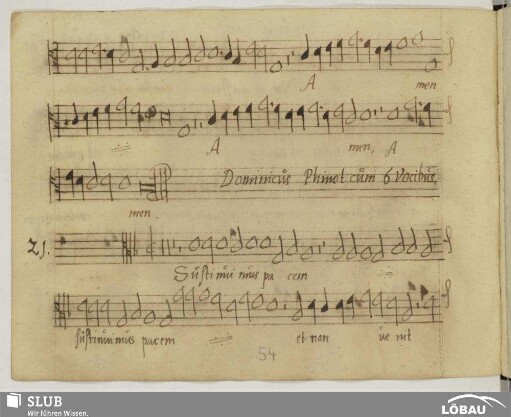 A men
A men, A
Dominicus Phinot cum 6 Vocibus
men.
21.
Sustinuimus pacem
sustinuimus pacem et non ue nit
54
SLUB
Wir führen Wissen.
LÖBAU